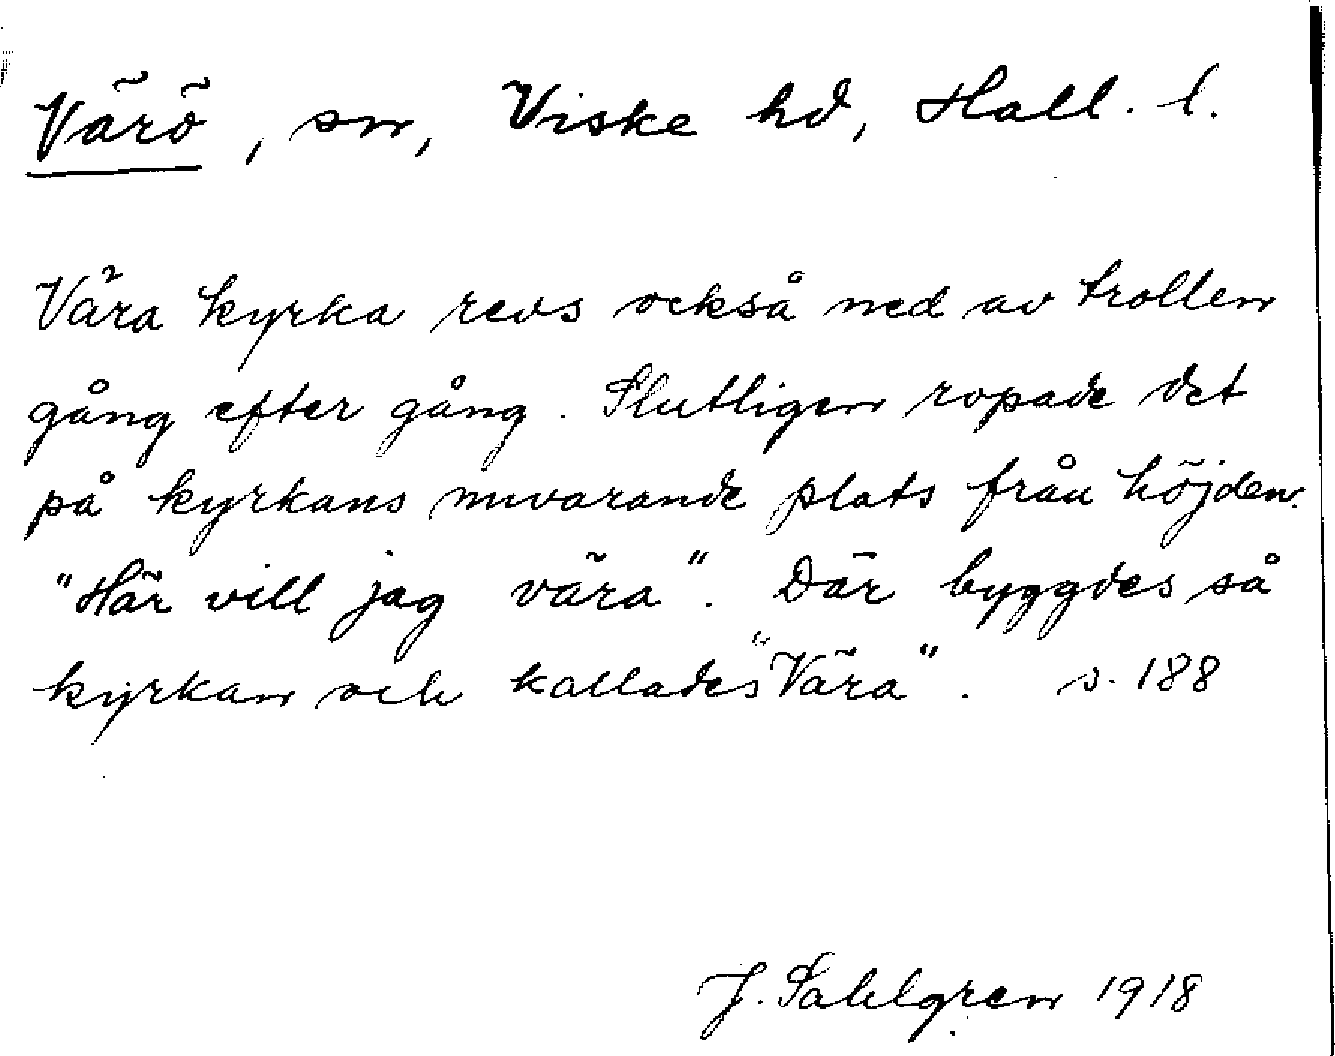 Värö, sn, Viske hd, Hall. l.
Vära kyrka revs också ned av trollen
gång efter gång. Slutligen ropade det
på kyrkans nuvarande plats från höjden:
"Här vill jag vära". Där byggdes så
kyrkan och kallades "Vära". s. 188
J. Sahlgren 1918